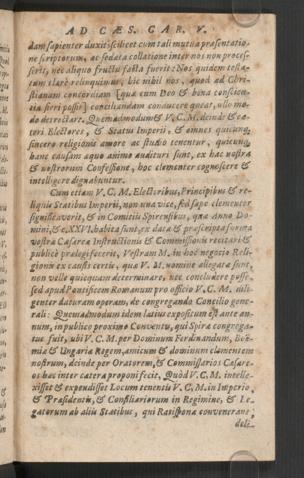 AD CÆS. CAR. V.
dam sapienter duxit: scilicet cum tali mutua præsentatio-
ne scriptorum, ac sedata collatione inter nos non proces-
serit, nec aliquo fructu facta fuerit: Nos quidem testa-
tum clarè relinquimus, hic nihil nos, quod ad Chri-
stianam concordiam (quæ cum Deo & bona conscien-
tia fieri possit) conciliandam conducere queat, ullo mo-
do detrectare. Quemadmodum & V. C. M. deinde & cæ-
teri Electores, & Status Imperii, & omnes quicunq;
sincero religionis amore ac studio tenentur, quicunq;
hanc causam æquo animo audituri sunt, ex hac nostra
& nostrorum Confessione, hoc clementer cognoscere &
intelligere dignabuntur.
Cum etiam V. C. M. Electoribus, Principibus & re-
liquis Statibus Imperii, non una vice, sed sæpe clementer
significaverit, & in Comitiis Spirensibus, quæ Anno Do-
mini, &c. XXVI. habita sunt, ex data & præscripta forma
vestræ Cæsareæ Instructionis & Commissionis recitari &
publicè prælegi fecerit, Vestram M. in hoc negocio Reli-
gionis ex causis certis, quæ V. M. nomine allegatæ sunt,
non velle quicquam determinare, nec concludere posse,
sed apud Pontificem Romanum pro officio V. C. M. dili-
genter daturam operam, de congregando Concilio gene-
rali: Quemadmodum idem latius expositum est ante an-
num, in publico proximo Conventu, qui Spiræ congrega-
tus fuit, ubi V. C. M. per Dominum Ferdinandum, Boë-
miæ & Ungariæ Regem, amicum & dominum clementem
nostrum, deinde per Oratorem, & Commissarios Cæsare-
os hæc inter cætera proponi fecit, Quòd V. C. M. intelle-
xisset & expendisset Locum tenentis V. C. M. in Imperio
& Præsidentis, & Consiliariorum in Regimine, & Le-
gatorum ab aliis Statibus, qui Ratisponæ convenerant,
deli-